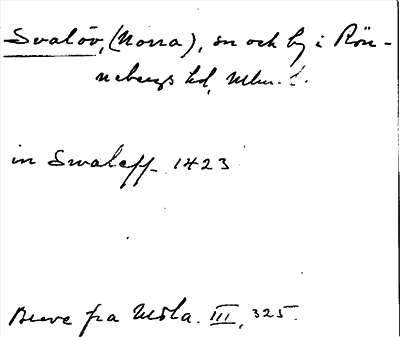 Svalöv, (Norra), sn och by i Rön-
nebergs hd, Mlm. l.
in Swaleff 1423
Breve fra Utösla. III, 325.